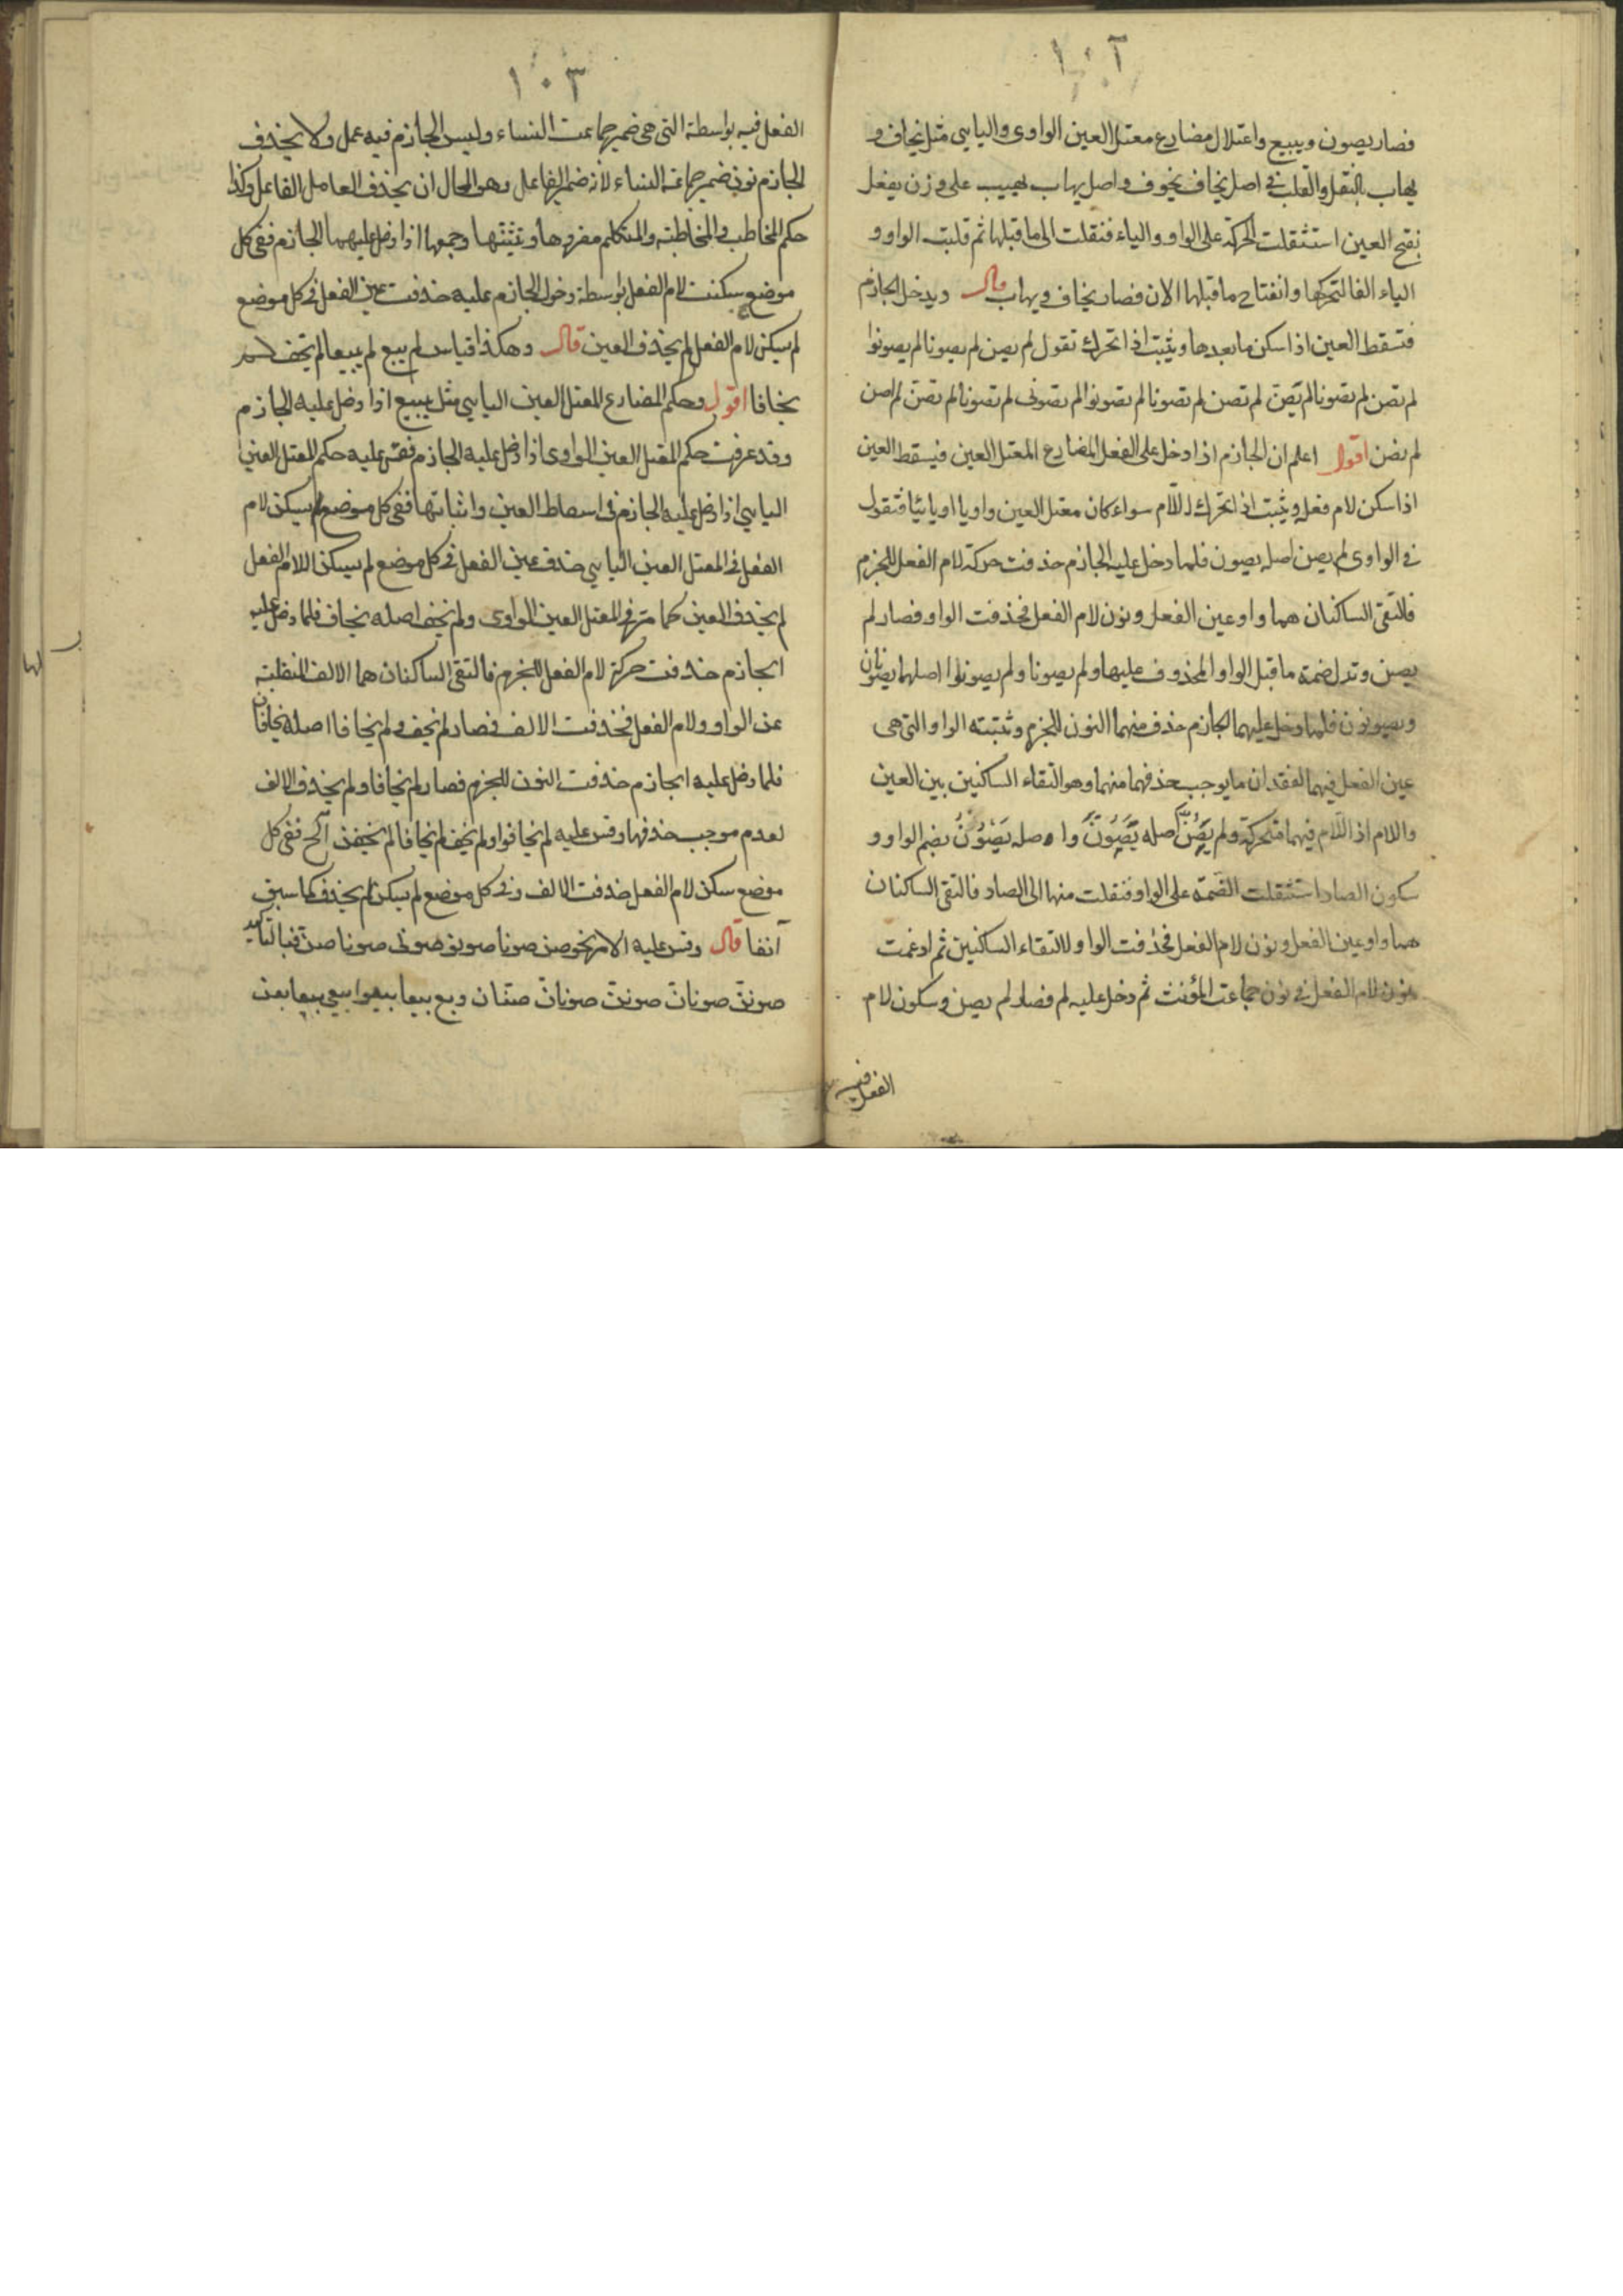 ١٠٢
فصار يصون ويبيع واعتلال مضارع معتل العين الواوى واليايى مثل يخاف و
يهاب بالنقل والقلب فى اصل يخاف يخوف واصل يهاب يهيب على وزن يفعل
بفتح العين استثقلت الحركة على الواو والياء فنقلت الى ما قبلها ثم قلبت الواو و
الياء الفا لتحركها وانفتاح ما قبلها الان فصار يخاف ويهاب قال ويدخل الجازم
فتسقط العين اذا سكن ما بعدها ويثبت اذا تحرك تقول لم يصن لم يصونا لم يصونوا
لم تصن لم تصونا لم يصن لم تصن لم تصونا لم تصونوا لم تصونى لم تصونا لم تصن لم اصن
لم نصن اقول اعلم ان الجازم اذا دخل على الفعل المضارع المعتل العين فيسقط العين
اذا سكن لام فعله ويثبت اذا تحرك اللام سواء كان معتل العين واويا او يائيا فتقول
فى الواوى لم يصن اصله يصون فلما دخل عليه الجازم حذفت حركة لام الفعل للجزم
فالتقى الساكنان هما واو عين الفعل ونون لام الفعل فحذفت الواو فصار لم
يصن وتدل ضمة ما قبل الواو المحذوف عليها ولم يصونا ولم يصونوا اصلهما يصونان
ويصونون فلما دخل عليهما الجازم حذف منهما النون للجزم وثبتته الواو التى هى
عين الفعل فيهما لفقدان ما يوجب حذفهما منهما وهو التقاء الساكنين بين العين
واللام اذ اللام فيهما متحركة ولم يصن اصله يصون واصله يصونن بضم الواو و
سكون الصاد استثقلت الضمة على الواو فنقلت منها الى الصاد فالتقى الساكنان
هما واو عين الفعل ونون لام الفعل فحذفت الواو لالتقاء الساكنين ثم ادغمت
نون لام الفعل فى نون جماعت المؤنث ثم دخل عليه لم فصار لم يصن وسكون لام
الفعل فيه
١٠٣
الفعل فيه بواسطة التى هى ضمير جماعت النساء وليس الجازم فيه عمل ولا يحذف
الجازم نون ضمير جماعة النساء لانه ضمير الفاعل وهو المحال ان يحذف العامل الفاعل وكذا
حكم المخاطب والمخاطبة والمتكلم مفردها وتثنتها وجمعها اذا دخل عليهما الجازم ففى كل
موضع سكنت لام الفعل بواسطة دخول الجازم عليه حذفت عين الفعل فى كل موضع
لم يسكن لام الفعل لم يحذف العين قال وهكذا قياس لم يبع لم يبيعا لم يخف لم
يخافا اقول وحكم المضارع المعتل العين اليايى مثل يبيع اذا دخل عليه الجازم
وقد عرفت حكم المعتل العين الواوى اذا دخل عليه الجازم فقس عليه حكم المعتل العين
اليايى اذا دخل عليه الجازم فى اسقاط العين واثباتها ففى كل موضع لم يسكن لام
الفعل فى المعتل العين اليايى حذف عين الفعل فى كل موضع لم يسكن اللام الفعل
لم يحذف العين كما مر فى المعتل العين الواوى ولم يخف اصله يخاف فلما دخل عليه
الجازم حذفت حركة لام الفعل للجزم فالتقى الساكنان هما الالف المنقلبة
عن الواو ولام الفعل فحذفت الالف فصار لم يخف ولم يخافا اصله يخافان
فلما دخل عليه الجازم حذفت النون للجزم فصار لم يخافا ولم يحذف الالف
لعدم موجب حذفها وقس عليه لم يخافوا ولم تخف لم تخافا لم يخفن الخ ففى كل
موضع سكن لام الفعل حذفت الالف وفى كل موضع لم يسكن لم يحذف كما سبق
آنفا قال وقس عليه الامر نحو صن صونا صونوا صونى صونا صن فبالتاكيد
صونن صونان صونن صونان صنان وبع بيعا بيعوا بيعى بيعا بعن